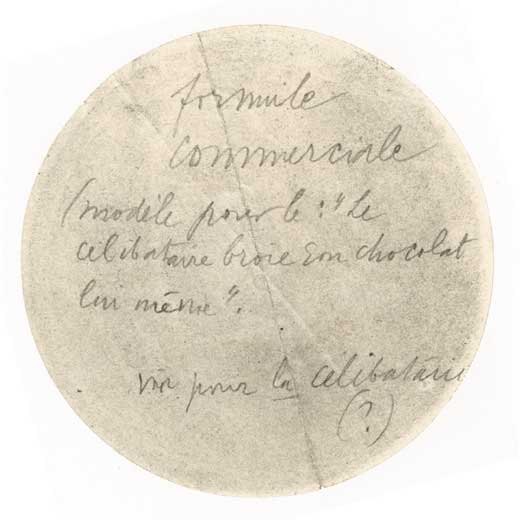 formule
commerciale
(modèle pour le : " le
célibataire broie son chocolat
lui même".
voir pour la célibataire
(?)